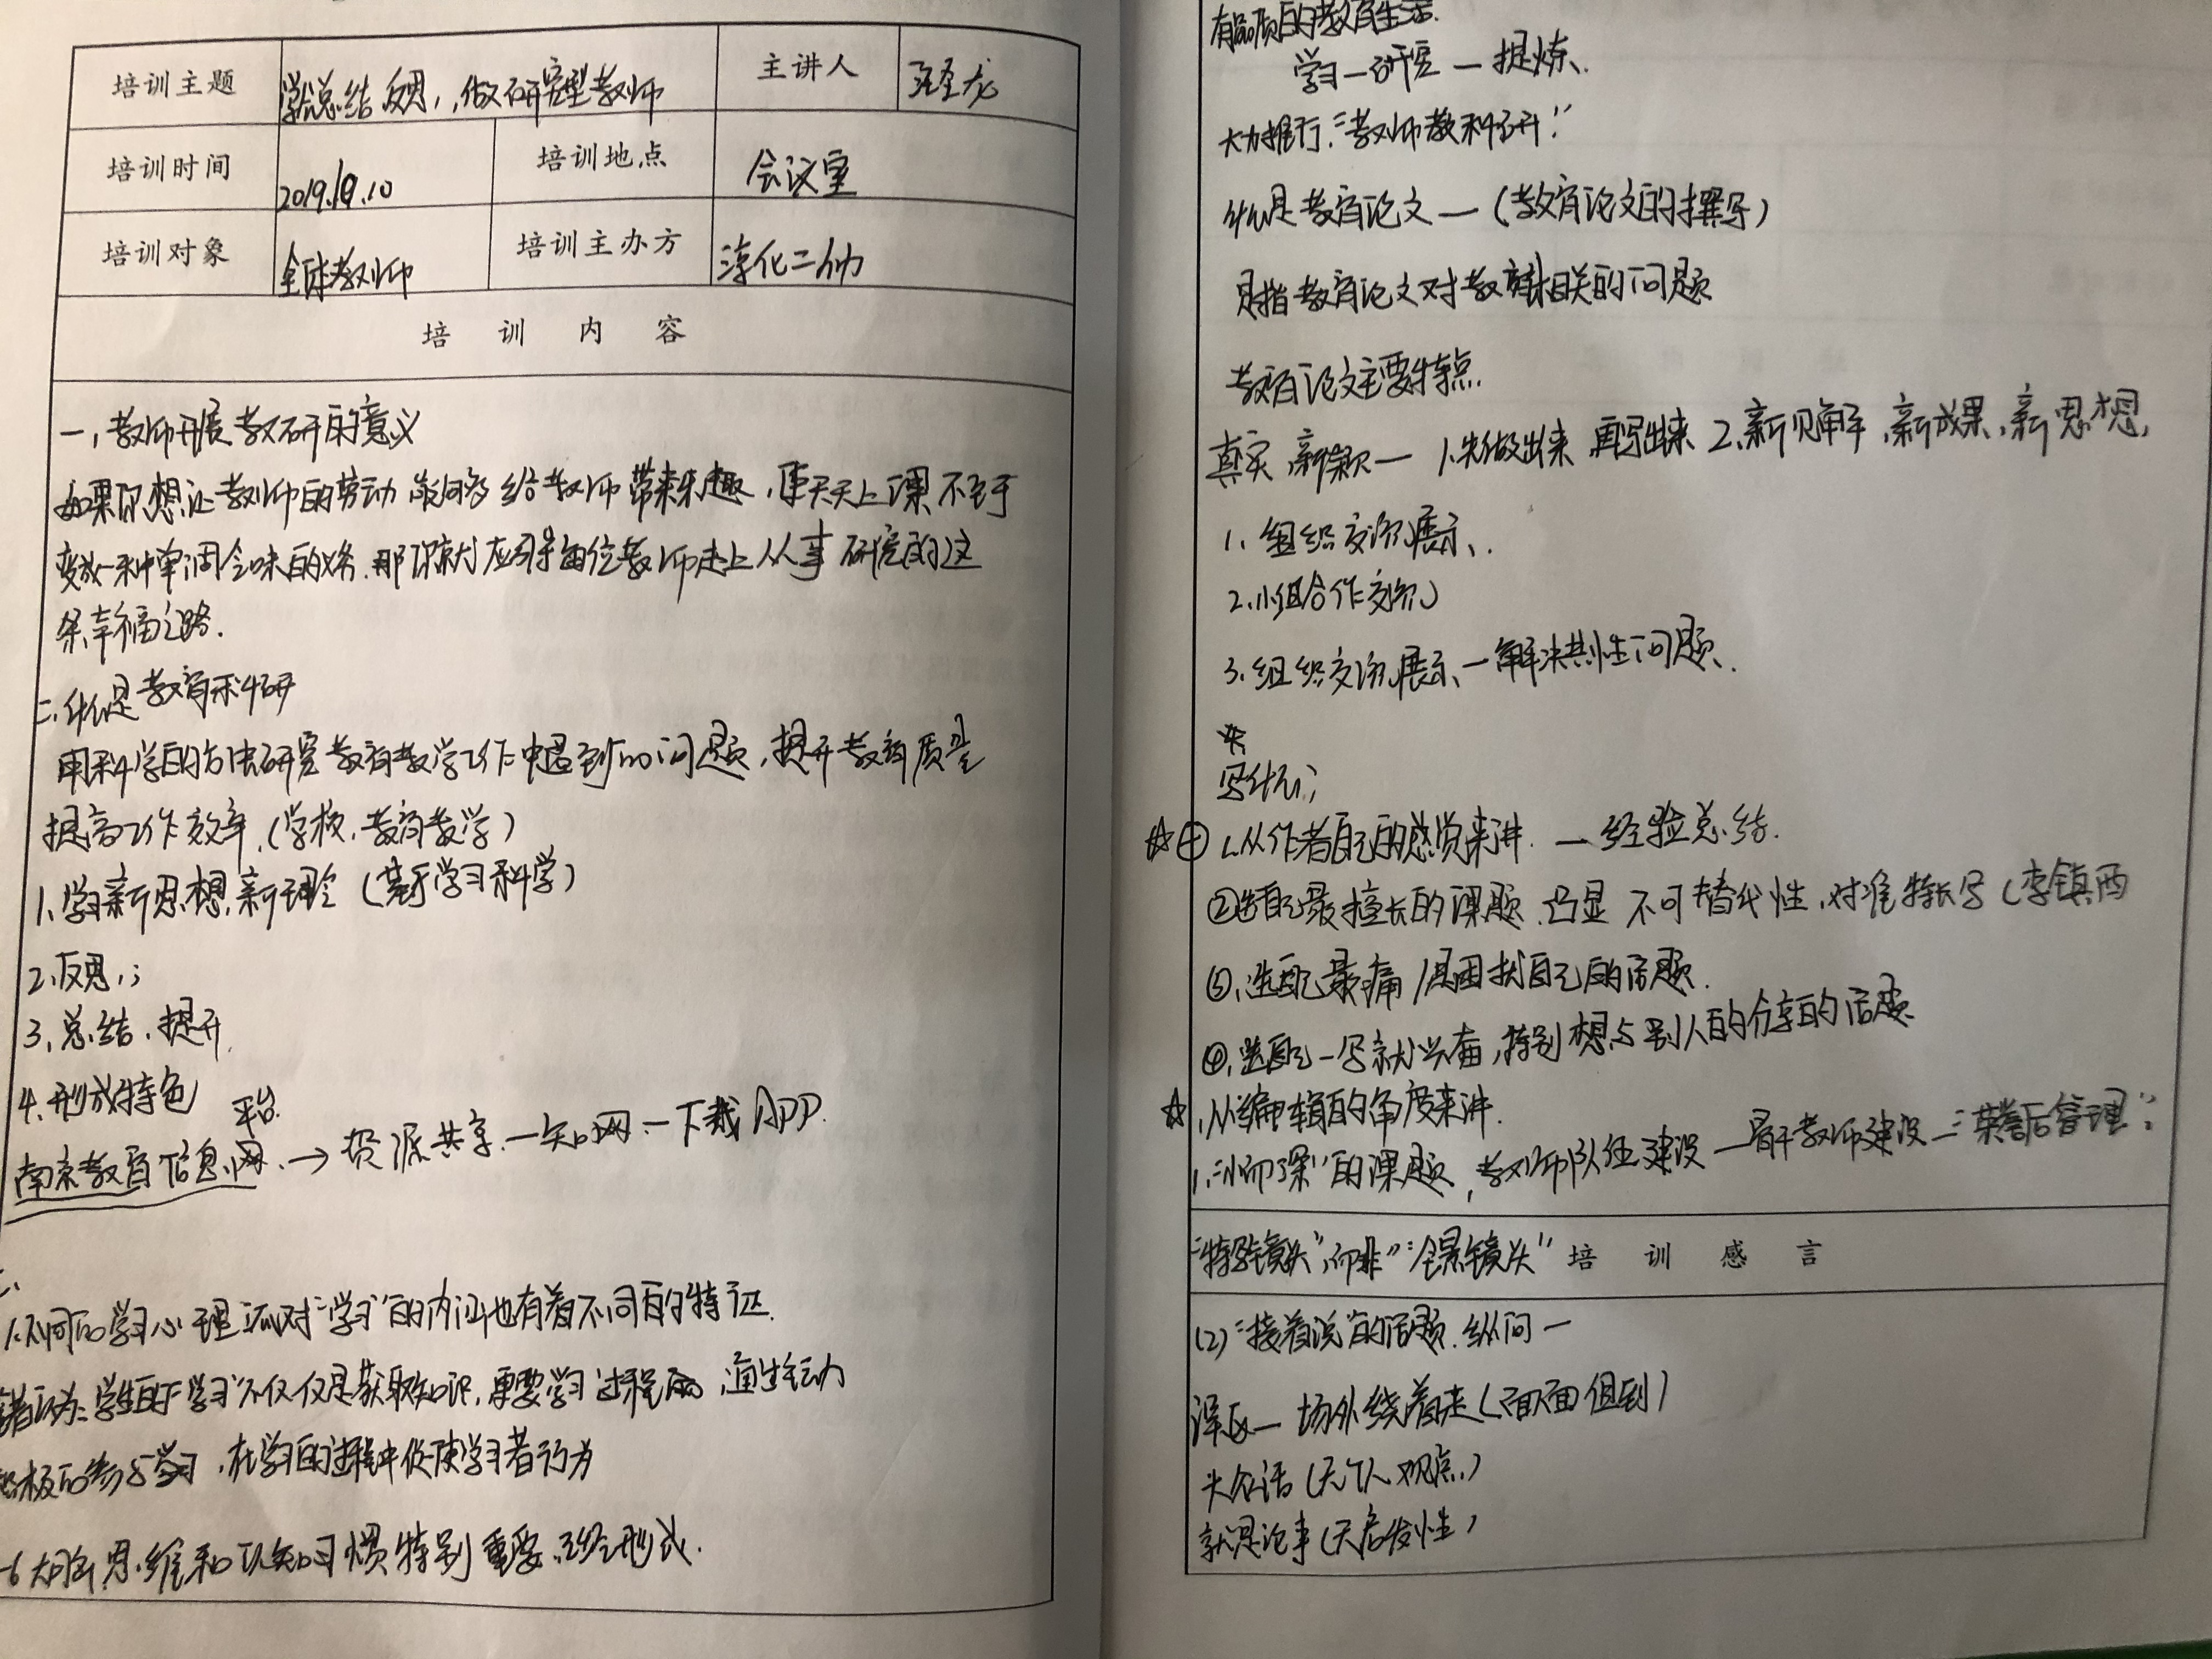 培训主题 学会总结反思，做研究型教师 主讲人
培训时间 2019.10.10 培训地点 会议室
培训对象 全体教师 培训主办方 淳化二幼
培训内容
一，教师开展教研的意义
如果你想让教师的劳动能够给教师带来乐趣，使天天上课不至于
变成一种单调乏味的义务，那你就应引导每位教师走上从事研究的这
条幸福之路.
二.什么是教育科研
用科学的方法研究教育教学工作中遇到的问题，提升教育质量
提高工作效率，(学校、教育教学)
1、学习新思想，新理论 (基于学习科学)
2、反思，；
3、总结、提升
4、形成特色
平台.
南京教育信息网、→资源共享—知网—下载APP.
1.不同的学习心理流对“学习”的内涵也有着不同的特征.
认为：学生的学习不仅仅是获取知识，更要学习过程
极的参与学习，在学习的过程中促使学习者行为
大脑思维和认知习惯特别重要，已经形成.
有品质的教育生活.
学习—研究—提炼、
大力推行：“教师教科研！”
什么是教育论文—(教育论文的撰写)
是指教育论文对教育相关的问题
教育论文主要特点
真实、新颖— 1.先做出来 再写出来 2、新见解、新成果、新思想，
1、组织交流展示、.
2.小组合作交流
3、组织交流展示、—解决共性问题、.
写什么；
☆ 1.从作者自己的感觉来讲. —经验总结.
②选自己最擅长的课题.凸显不可替代性，对准特长写(李镇西
③、选自己最痛/最困扰自己的话题.
④.选自己一写就兴奋，特别想与别人的分享的话题.
☆.从编辑的角度来讲.
1.“小而深”的课题，教师队伍建设—骨干教师建设—“荣誉后管理”；
“特写镜头”，而非”“全景镜头” 培训感言
(2)“接着说”的话题.纵向—
误区— 场外绕着走(面面俱到)
大众话(无个人观点)
就是论事(无启发性)